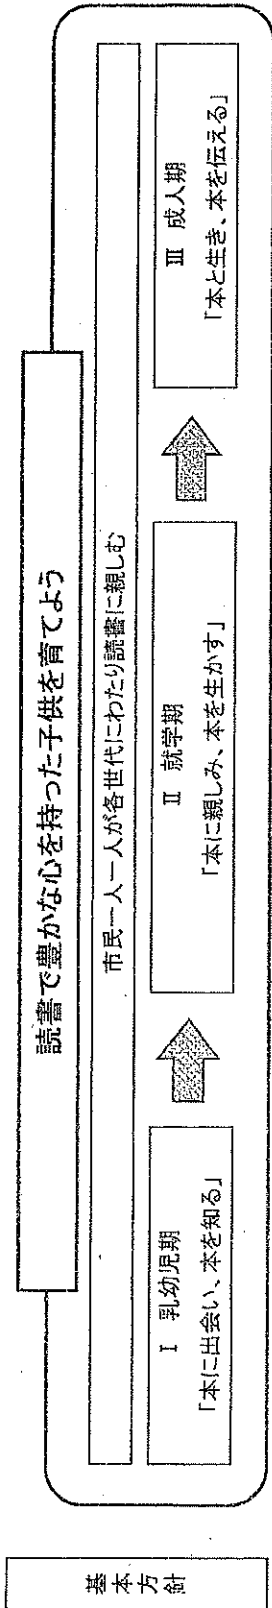 基本方針
読書で豊かな心を持った子供を育てよう
市民一人一人が各世代にわたり読書に親しむ
Ⅰ 乳幼児期
「本に出会い、本を知る」
Ⅱ 就学期
「本に親しみ、本を生かす」
Ⅲ 成人期
「本と生き、本を伝える」